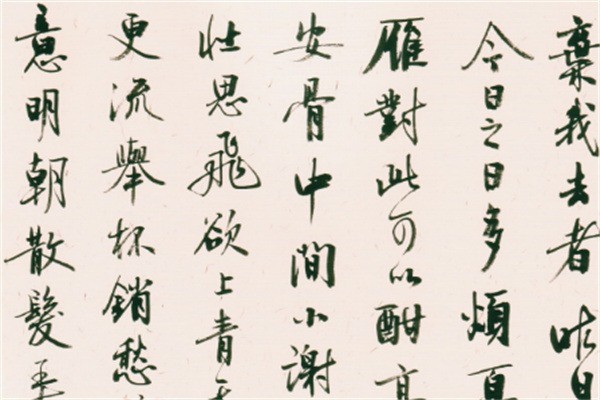 棄我去者昨日
今日之日多煩
雁對此可以酣高
安骨中間小謝
壯思飛欲上青天
更流舉杯銷愁
意明朝散髮弄